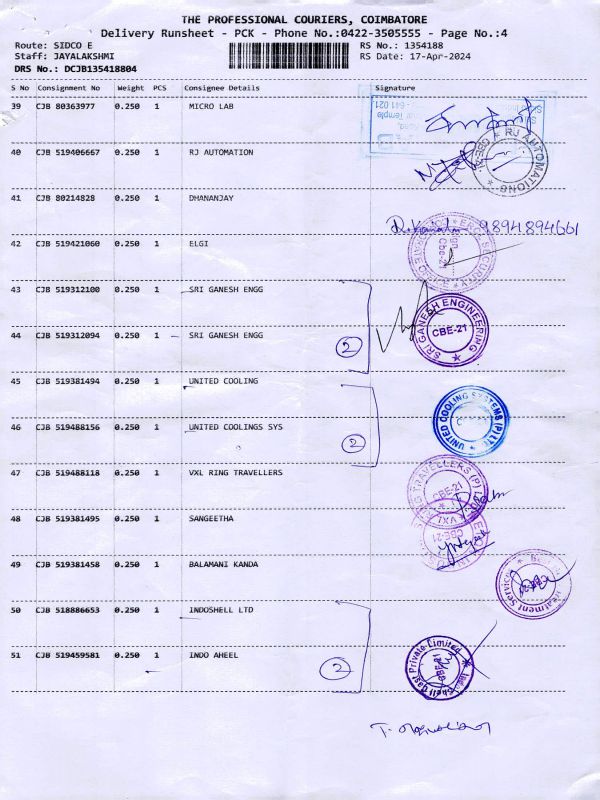 THE PROFESSIONAL COURIERS, COIMBATORE
Delivery Runsheet - PCK - Phone No.:0422-3505555 - Page No.:4
Route: SIDCO E RS No.: 1354188
Staff: JAYALAKSHMI RS Date: 17-Apr-2024
DRS No.: DCJB135418804
S No Consignment No Weight PCS Consignee Details Signature
39 CJB 80363977 0.250 1 MICRO LAB
641 021
40 CJB 519406667 0.250 1 RJ AUTOMATION
RJ AUTOMATIONS
41 CJB 80214828 0.250 1 DHANANJAY
9894894661
42 CJB 519421060 0.250 1 ELGI
43 CJB 519312100 0.250 1 SRI GANESH ENGG
44 CJB 519312094 0.250 1 SRI GANESH ENGG
2
SRI GANESH ENGINEERING
CBE-21
45 CJB 519381494 0.250 1 UNITED COOLING
46 CJB 519488156 0.250 1 UNITED COOLINGS SYS
2
UNITED COOLING SYSTEMS (P) LTD
47 CJB 519488118 0.250 1 VXL RING TRAVELLERS
CBE-21
48 CJB 519381495 0.250 1 SANGEETHA
49 CJB 519381458 0.250 1 BALAMANI KANDA
50 CJB 518886653 0.250 1 INDOSHELL LTD
51 CJB 519459581 0.250 1 INDO AHEEL
2